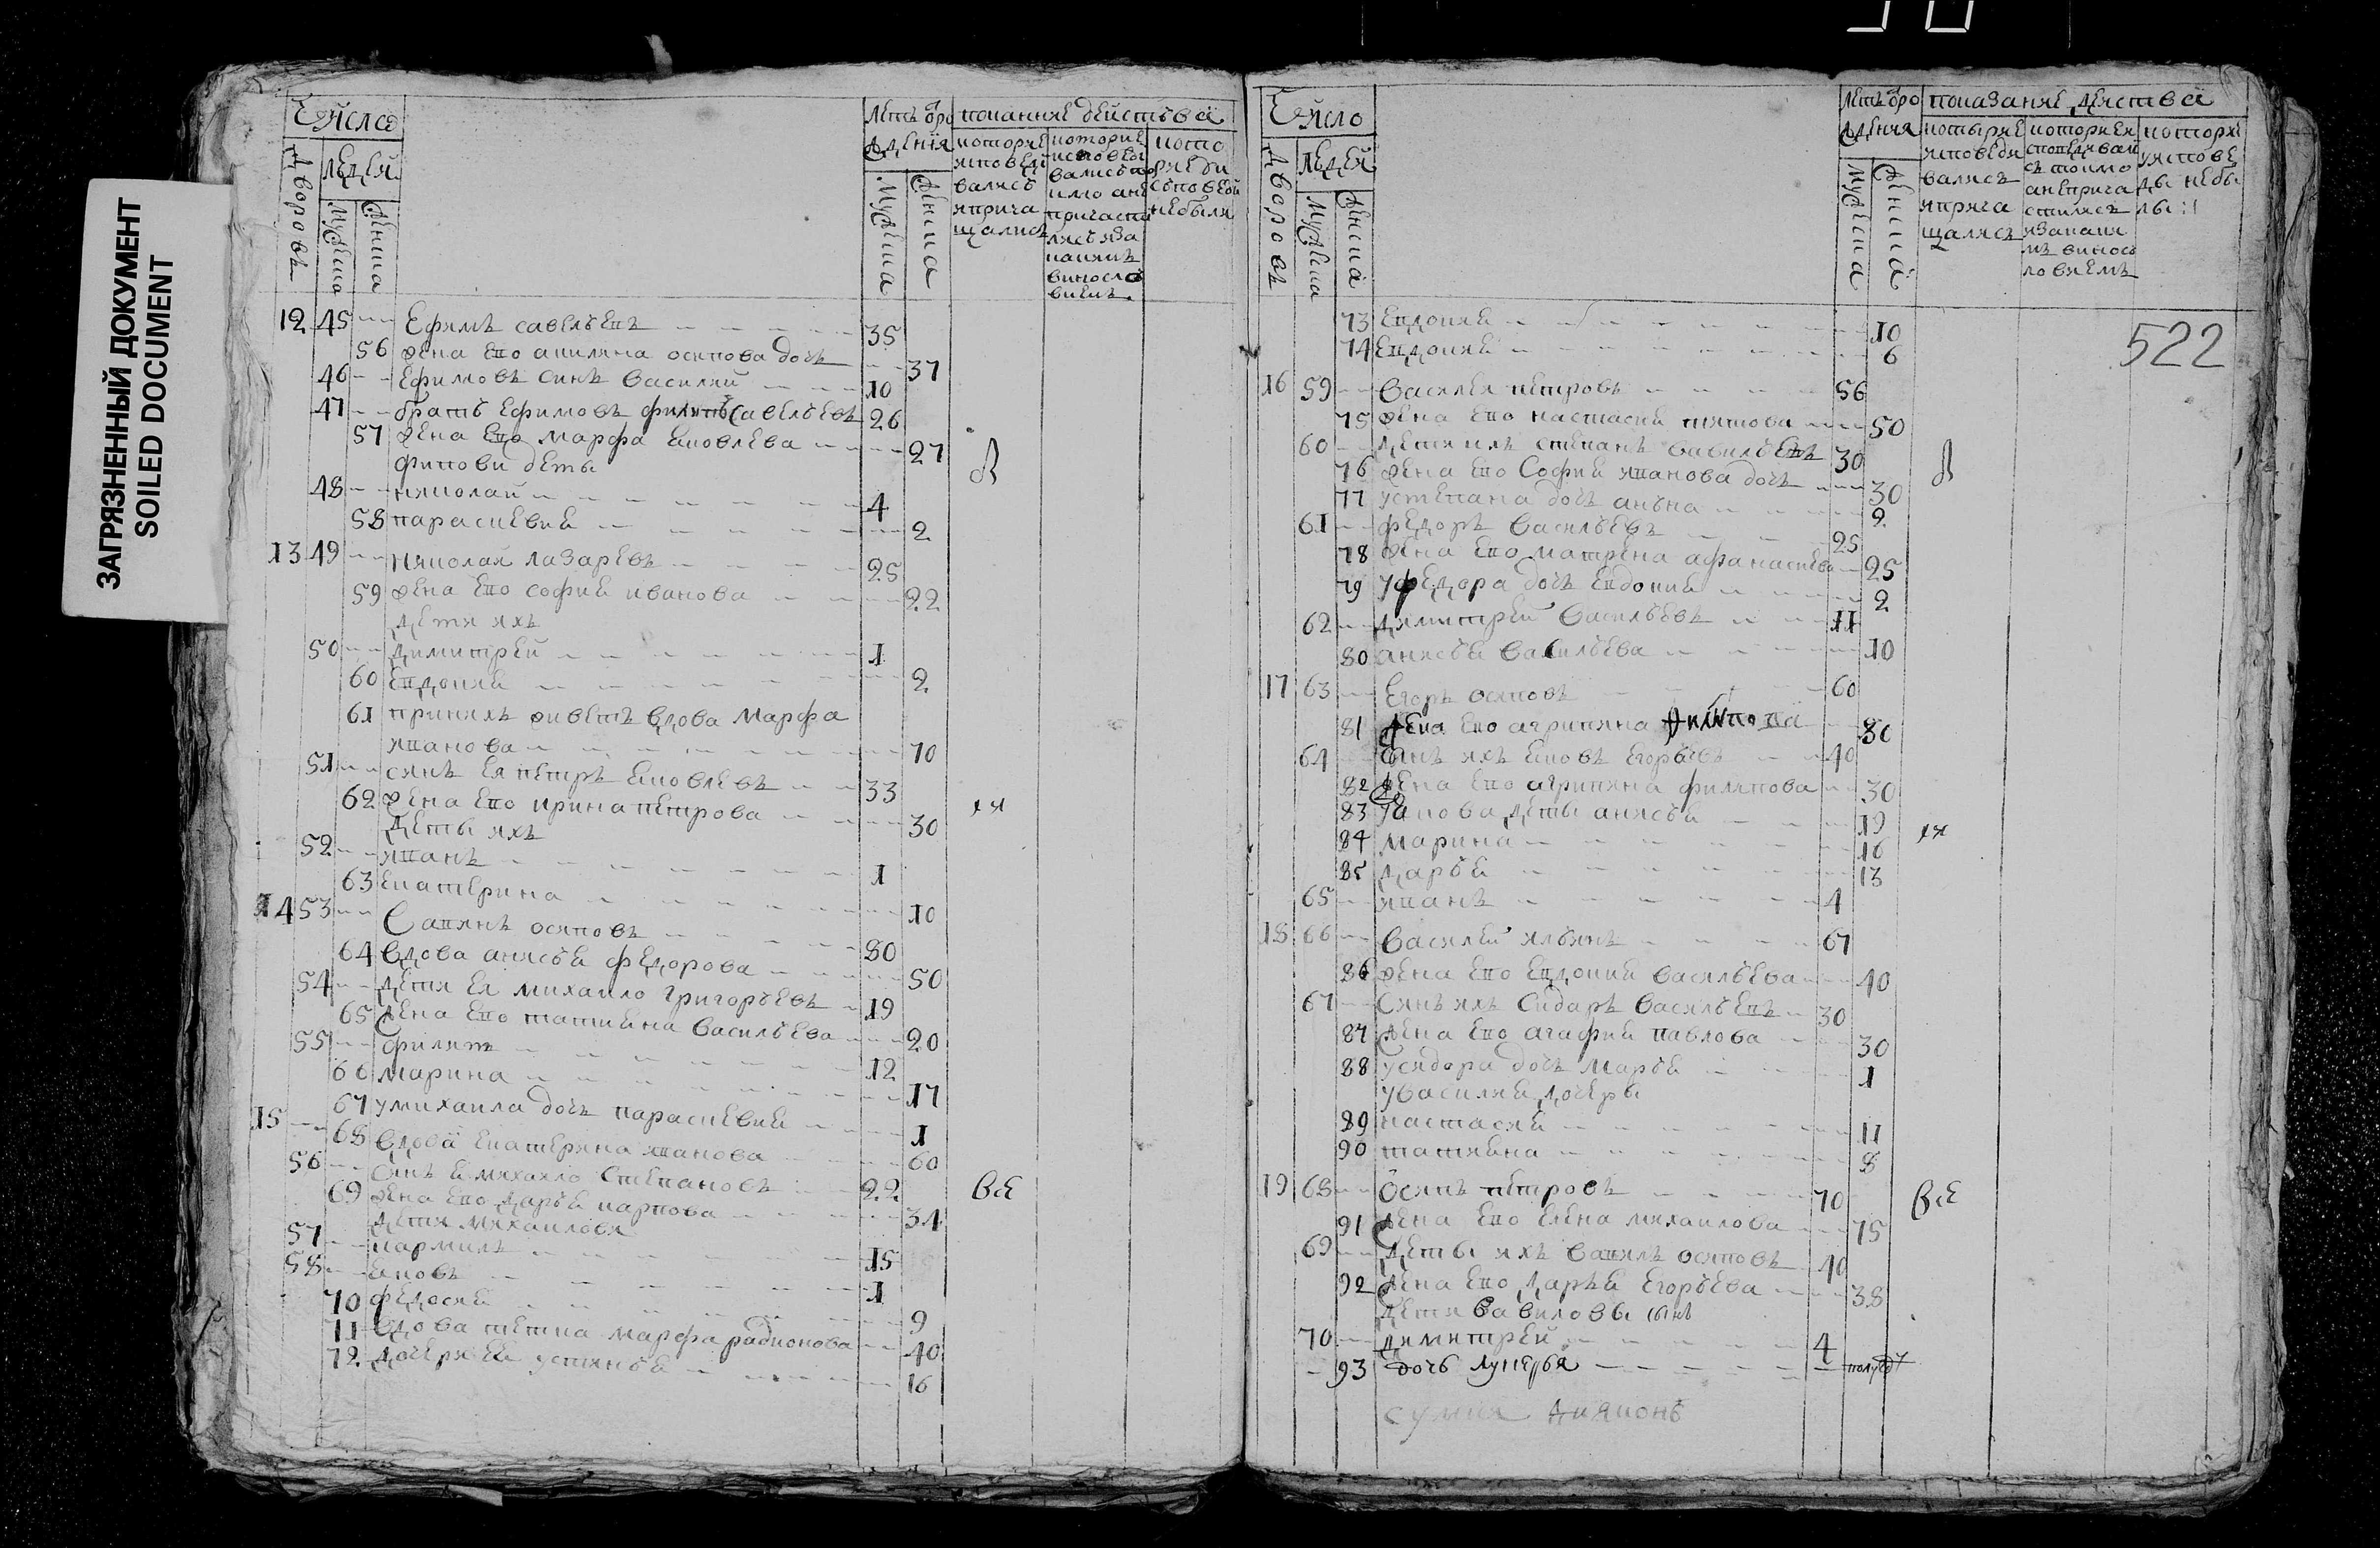 ЗАГРЯЗНЕННЫЙ ДОКУМЕНТ
SOILED DOCUMENT
Число
Дворовъ
Людей
Мужеска
Женска
Летъ оро
ждения
Мужеска
Женска
показание действа
которие
исповеди
вались
и прича
щались
которие
исповеди
вались
причасти
лись и за
каким
винослов
не были
12 45 Ефимъ савелъевъ 35
56 жена ево акилина осипова дочь 37
46 Ефимовъ синъ василий 10
47 братъ Ефимовъ филипъ савелъевъ 26
57 жена ево марфа яковлева 27
дети
48 николай 4
58 параскевия 2
13 49 николай лазаревъ 25
59 жена ево софия иванова 22
дети ихъ
50 димитрей 1
60 евдокия 2
61 при нихъ живетъ вдова марфа
иванова 70
51 синъ ея петръ яковлевъ 33
62 жена ево ирина петрова 30
дети ихъ
52 иванъ 1
63 екатерина 10
14 53 осиповъ 80
64 вдова анисья федорова 50
54 дети ея михаило григоръевъ 19
65 жена ево татияна василъева 20
55 филипъ 12
66 марина 17
67 у михаила дочь параскевия 1
15 68 вдова екатерина иванова 60
56 синъ ея михаило степановъ 22
69 жена ево даръя карпова 34
дети михаилови
57 15
58 яковъ 1
70 федосия 9
71 вдова тетка марфа радионова 40
72 дочери ея устинья 16
всЕ
Число
Дворовъ
Людей
Мужеска
Женска
Летъ оро
ждения
Мужеска
Женска
показание деяства
исповеди
вались
и прича
щались
у испове
ди не бы
ли
522
73 евдокия 10
74 евдокия 6
16 59 василей петровъ 56
75 жена ево настасия титова 50
60 дети ихъ степанъ василъевъ 30
76 жена ево София иванова дочь 30
77 у степана дочь анъна 2
61 федоръ василъевъ 25
78 жена ево матрена афанасиева 25
79 у федора дочь евдокия 2
62 димитрей василъевъ 11
80 анисъя василъева 10
17 63 Егоръ осиповъ 60
81 жена ево агрипина 80
64 синъ ихъ яковъ егоръевъ 40
82 жена ево агрипина филипова 30
83 якова дети анисъя 19
84 марина 16
85 даръя 13
65 иванъ 4
18 66 василей илъинъ 67
86 жена ево евдокия василъева 40
67 Синъ ихъ Сидаръ василъевъ 30
87 жена ево агафия павлова 30
88 у сидора дочь маръя 1
у василия дочери
89 настасия 11
90 татияна 8
19 68 Осипъ петровъ 70
91 жена ево елена михаилова 75
69 дети ихъ вавилъ осиповъ 40
92 жена ево даръя егоръева 38
дети вавиловы синъ
70 димитрей 4
93 дочь лукерья
всЕ